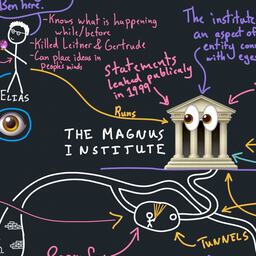 Ben here.
-Knows what is happening
while/before
-Killed Leitner & Gertrude
-Can place ideas in
peoples minds
ELIAS
The institute
an aspect of
entity con
with eyes
Statements
leaked publicaly
in 1999
Runs
THE MAGNUS
INSTITUTE
TUNNELS